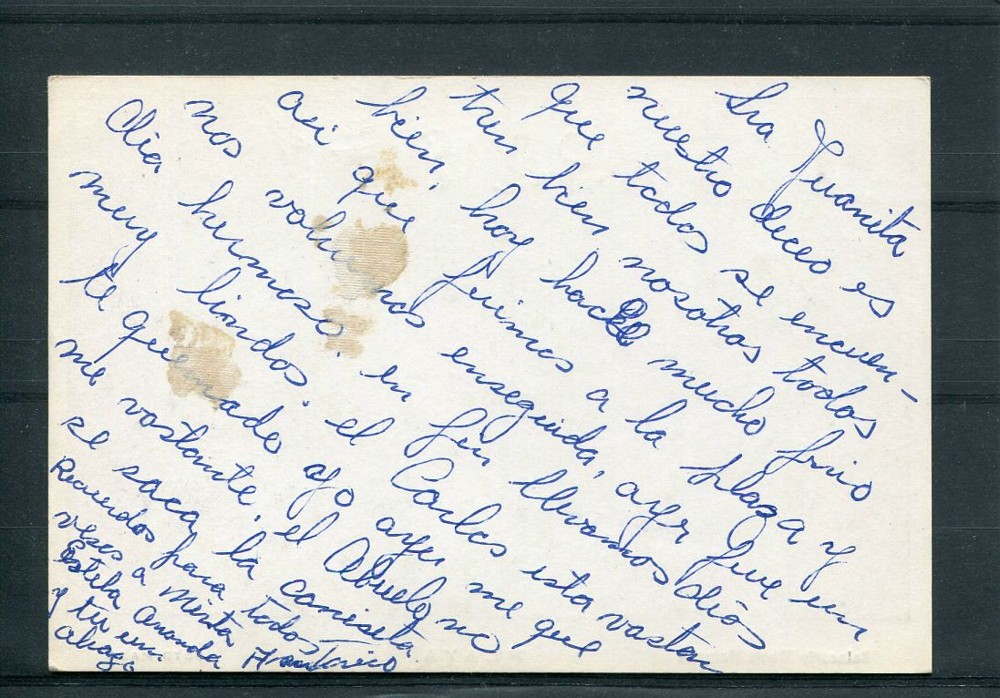 Sra Juanita
nuestro deceo es
que todos se encuen-
tren bien nosotros todos
bien, hoy hace mucho frio
asi que fuimos a la plaza y
nos volvimos enseguida, ayr fue un
dia hermoso. en fin llevamos dios
muy lindos. el Carlos esta vastan
te quemado yo ayer me que
me vastante, el Abuelo no
se saca la camiseta
Recuerdos para todos
veses a Mirta
Estela Antonio
y tu un